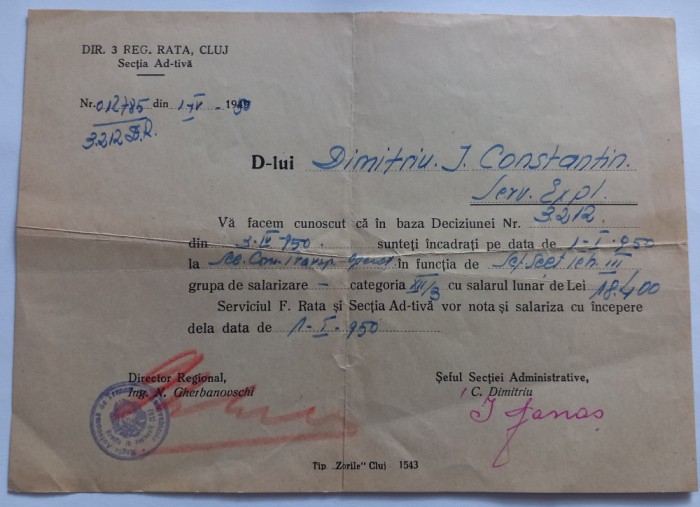 DIR. 3 REG. RATA, CLUJ
Secția Ad-tivă
Nr. 012785 din 1-V-1950
3212 D.R.
D-lui Dimitriu. I. Constantin.
Serv. Expl.
Vă facem cunoscut că în baza Deciziunei Nr. 3212.
din 3.IV.950 sunteți încadrați pe data de 1-I-950
la în funcția de III
grupa de salarizare – categoria XII/3 cu salarul lunar de Lei 18.400
Serviciul F. Rata și Secția Ad-tivă vor nota și salariza cu începere
dela data de 1-I-950
Director Regional,
Ing. N. Gherbanovschi
Șeful Secției Administrative,
C. Dimitriu
Tip „Zorile" Cluj 1543